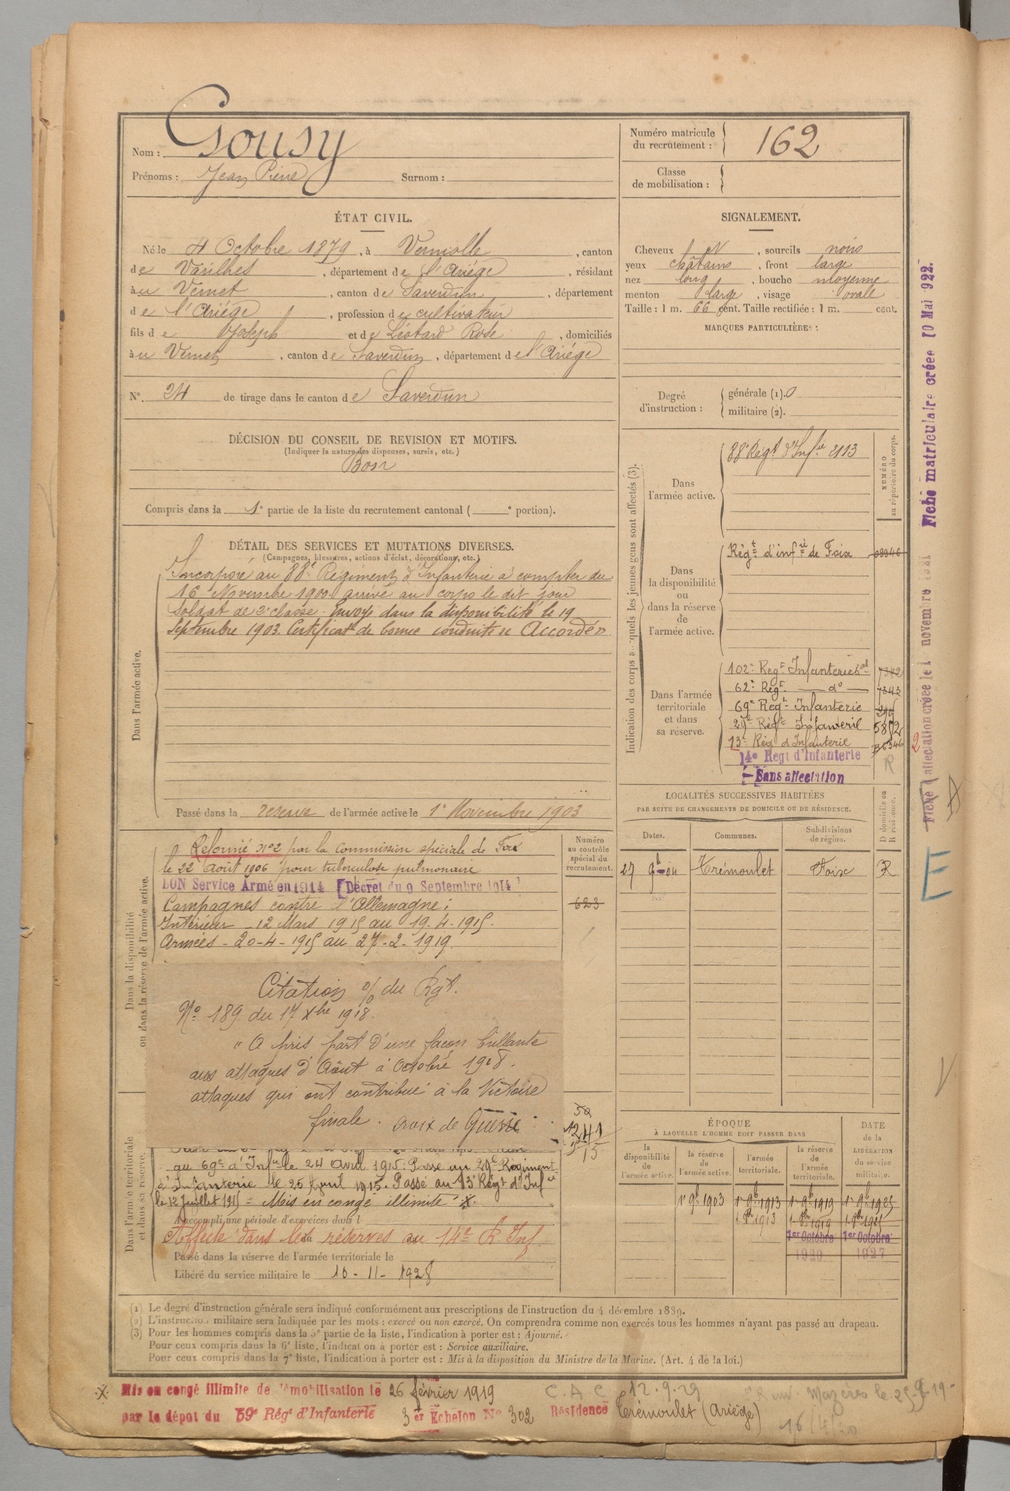 Nom : Gousy
Prénoms : Jean Pierre Surnom :
Numéro matricule du recrutement : 162
Classe de mobilisation :
ÉTAT CIVIL.
Né le 4 Octobre 1879, à Verniolle, canton
de Varilhes, département de l'Ariége, résidant
à au Vernet, canton de Saverdun, département
de l'Ariége, profession de cultivateur
fils de Joseph et de Léotard Rose, domiciliés
à au Vernet, canton de Saverdun, département de l'Ariége
N° 24 de tirage dans le canton de Saverdun
DÉCISION DU CONSEIL DE REVISION ET MOTIFS.
(Indiquer la nature des dispenses, sursis, etc.)
Bon
Compris dans la 1e partie de la liste du recrutement cantonal ( e portion).
DÉTAIL DES SERVICES ET MUTATIONS DIVERSES.
(Campagnes, blessures, actions d'éclat, décorations, etc.)
Dans l'armée active.
Incorporé au 88e Régiment d'Infanterie à compter du
16 Novembre 1900 arrivé au corps le dit jour
Soldat de 2e classe. Envoyé dans la disponibilité le 19
Septembre 1903. Certificat de bonne conduite Accordé
Passé dans la reserve de l'armée active le 1er Novembre 1903
Dans la disponibilité ou dans la réserve de l'armée active.
Réformé N°2 par la commission spéciale de Foix
le 22 Août 1906 pour tuberculose pulmonaire
BON Service Armé en 1914 (Décret du 9 Septembre 1914)
Campagnes contre l'Allemagne :
Intérieur - 12 Mars 1915 au 19.4-1915.
Armées - 20-4-1915 au 27-2-1919
Numéro au contrôle spécial du recrutement.
623
Citation o/o du Rgt.
N° 189 du 17 Xbre 1918.
" A pris part d'une façon brillante
aux attaques d'Août à Octobre 1918.
attaques qui ont contribué à la Victoire
finale. Croix de Guerre.
Dans l'armée territoriale et dans sa réserve.
au 69e d'Infrie le 24 Avril 1915. Passé au 29e Régiment
d'Infanterie le 25 April 1915. Passé au 13e Régt d'Infie
le 12 Juillet 1915 = Mis en congé illimité *
A accompli une période d'exercices dans l
Affecté dans les réserves au 14e R Inf
Passé dans la réserve de l'armée territoriale le
Libéré du service militaire le 10-11-1928
SIGNALEMENT.
Cheveux N, sourcils noirs
yeux châtains, front large
nez long, bouche moyenne
menton large, visage ovale
Taille : 1 m. 66 cent. Taille rectifiée : 1 m. cent.
MARQUES PARTICULIÈRES :
Degré d'instruction : générale (1). 0
militaire (2).
Indication des corps auxquels les jeunes gens sont affectés (3).
NUMÉRO au répertoire du corps.
Dans l'armée active.
88e Régt d'Infie 2113
Dans la disponibilité ou dans la réserve de l'armée active.
Régt d'infie de Foix
Dans l'armée territoriale et dans sa réserve.
102e Regt Infanterie
62e Régt. — do —
69e Regt Infanterie
29e Régt Infanterie 5872
13e Rég d'Infanterie
14e Regt d'Infanterie R
Sans affectation
LOCALITÉS SUCCESSIVES HABITÉES
PAR SUITE DE CHANGEMENTS DE DOMICILE OU DE RÉSIDENCE.
Dates. Communes. Subdivisions de région. D domicile ou R résidence.
27 9b 04 Trémoulet Foix R
ÉPOQUE
À LAQUELLE L'HOMME DOIT PASSER DANS
la disponibilité de l'armée active. la réserve de l'armée active. l'armée territoriale. la réserve de l'armée territoriale.
DATE de la LIBÉRATION du service militaire.
1er 9b 1903 1er 9b 1913 1er 9b 1919 1er 9b 1925
1er Octobre 1920 1er Octobre 1927
Fiche affectation créée le 1 novembre 1921
Fiche matriculaire créée 10 Mai 1922.
E
(1) Le degré d'instruction générale sera indiqué conformément aux prescriptions de l'instruction du 4 décembre 1889.
(2) L'instruction militaire sera indiquée par les mots : exercé ou non exercé. On comprendra comme non exercés tous les hommes n'ayant pas passé au drapeau.
(3) Pour les hommes compris dans la 5e partie de la liste, l'indication à porter est : Ajourné.
Pour ceux compris dans la 6e liste, l'indication à porter est : Service auxiliaire.
Pour ceux compris dans la 7e liste, l'indication à porter est : Mis à la disposition du Ministre de la Marine. (Art. 4 de la loi.)
* Mis en congé illimité de démobilisation le 26 février 1919 C.A.C 12.9.29
par le dépôt du 59e Régt d'Infanterie 3er Echelon N° 302 Résidence Trémoulet (Ariège)